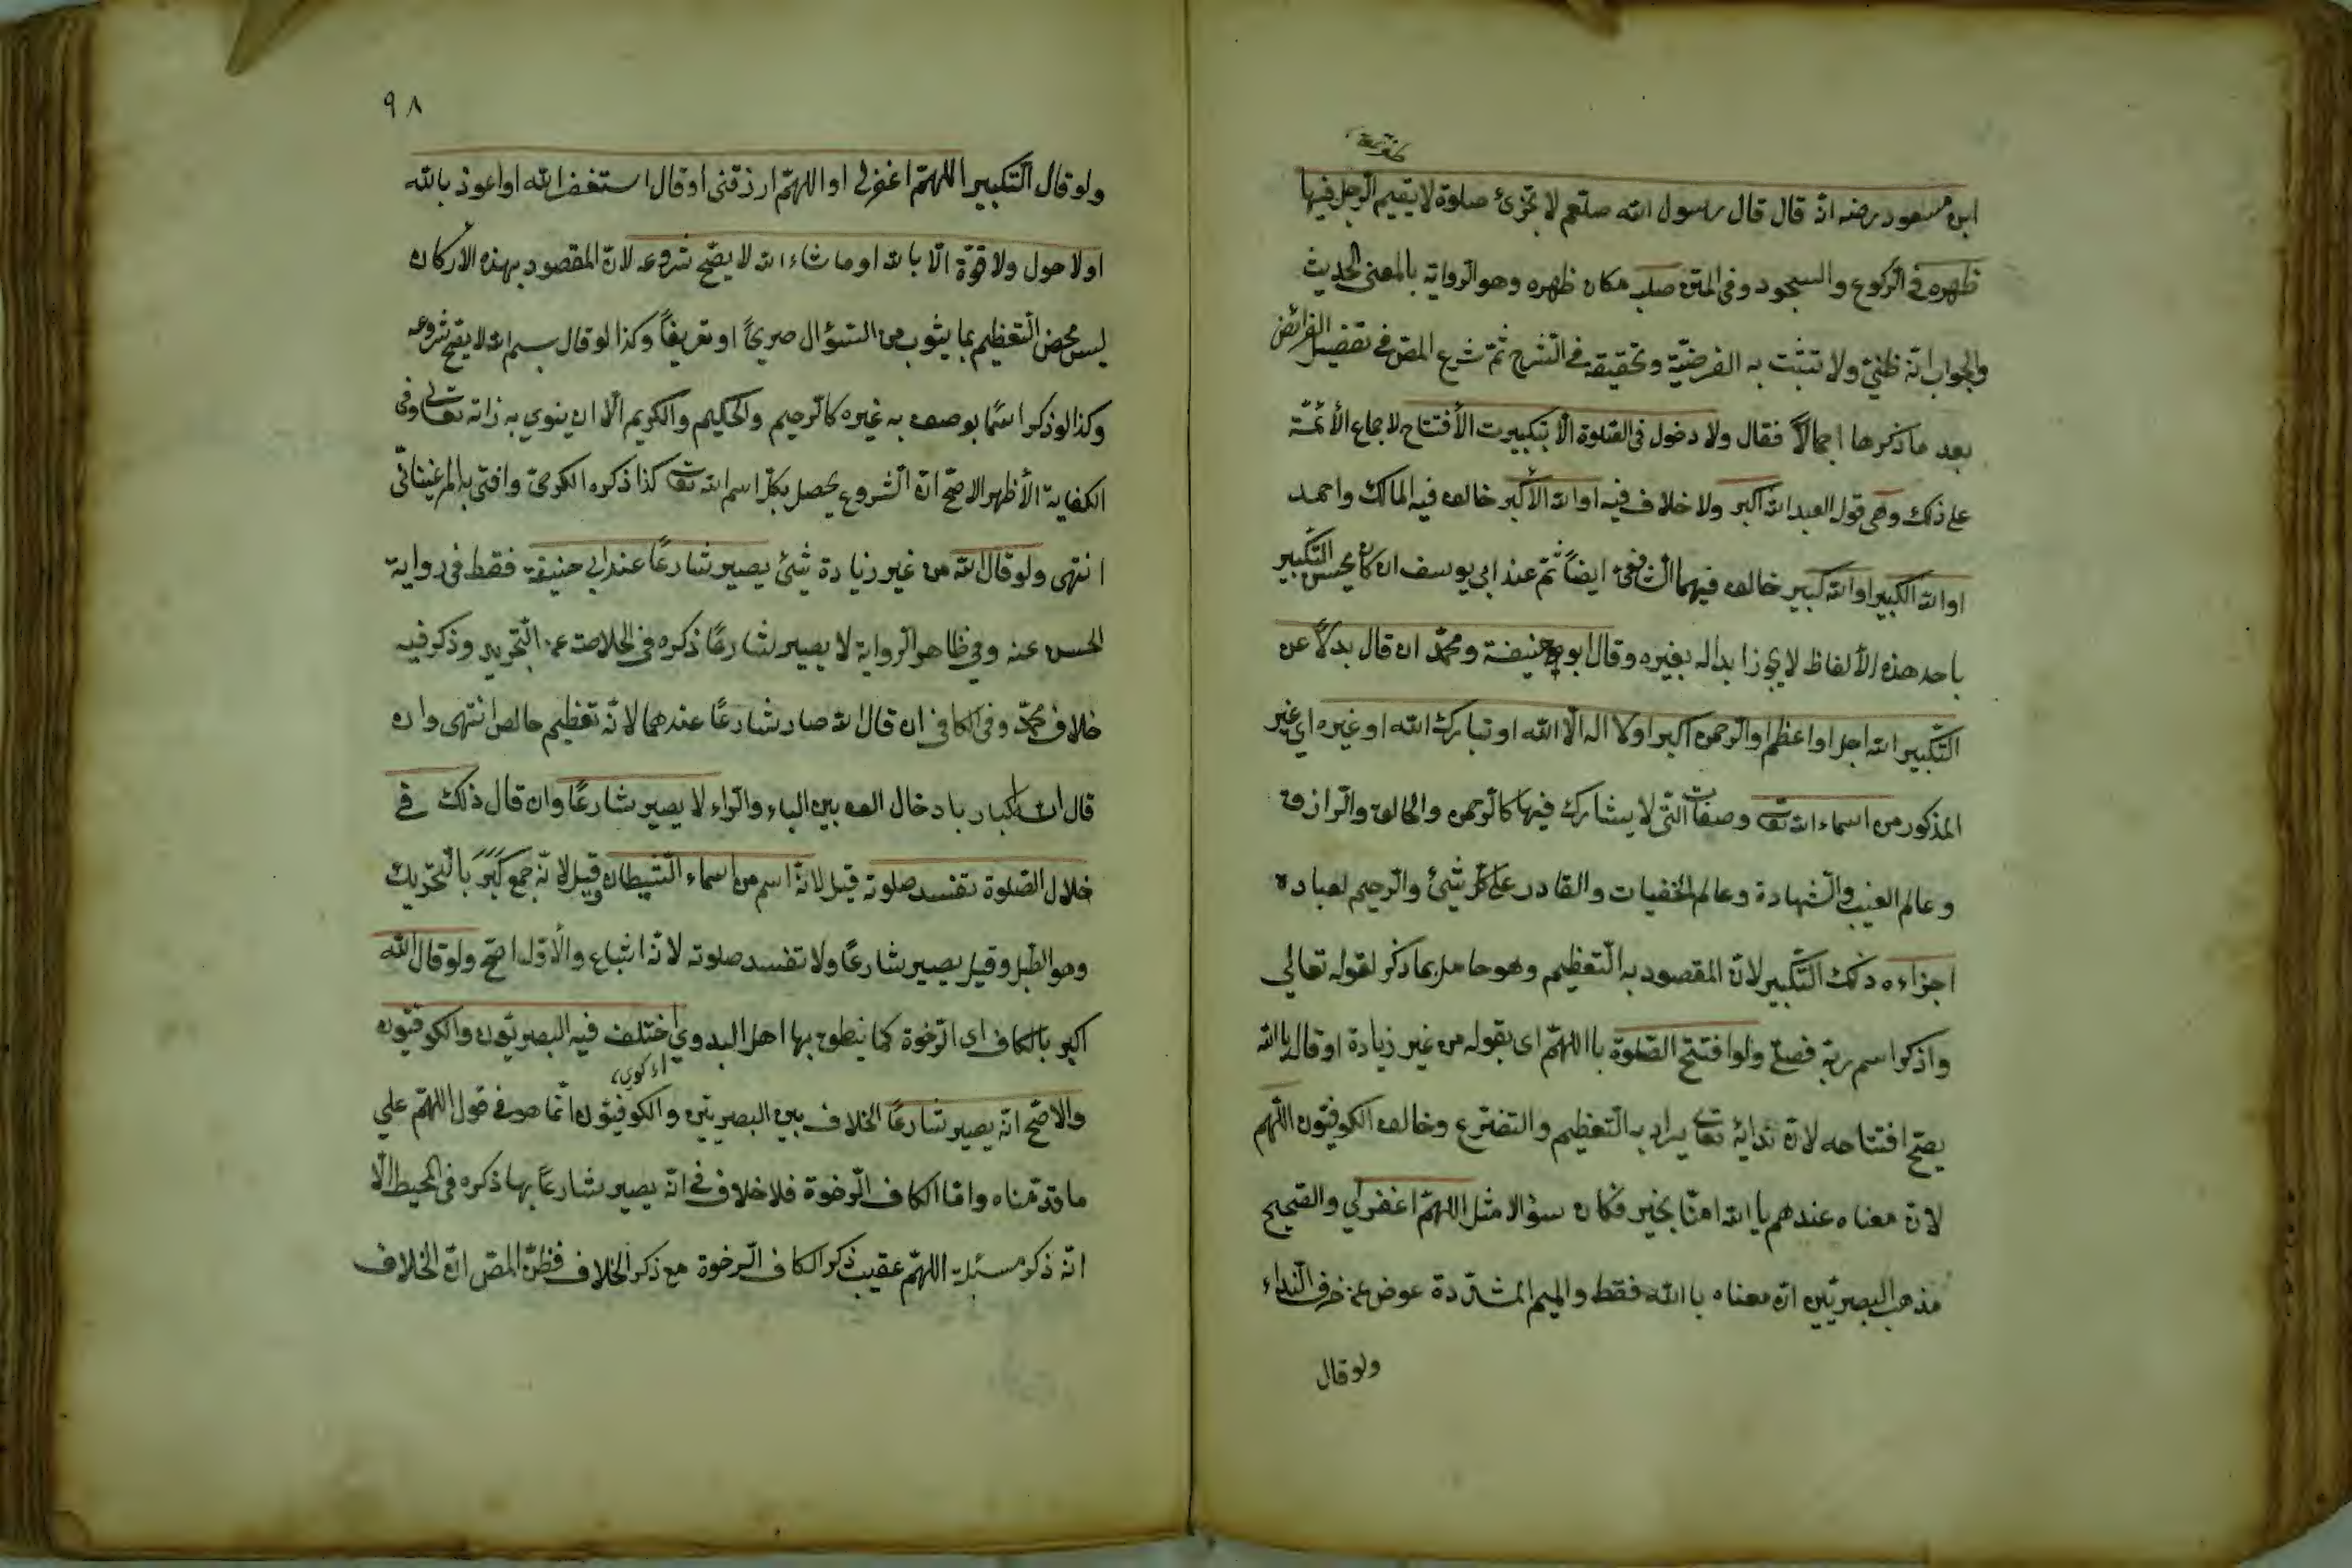 ابن مسعود رضه انه قال قال رسول الله صلعم لا تجزئ صلوة لا يقيم الرجل فيها
ظهره في الركوع والسجود وفي المتن صلبه مكان ظهره وهو الرواية بالمعنى الحديث
والجواب انه ظني ولا تثبت به الفرضية وتحقيقه في الشرح ثم شرع المص في تفضيل الفرائض
بعد ما ذكرها اجمالاً فقال ولا دخول في الصلوة الا بتكبيرت الأفتتاح لاجماع الأئمة
على ذلك وهي قول العبد الله اكبر ولا خلاف فيه او الله الأكبر خالف فيه المالك واحمد
او الله الكبير او الله كبير خالف فيهما الشافعي ايضاً ثم عند ابي يوسف ان كان يحسن التكبير
باحد هذه الألفاظ لا يجوز ابداله بغيره وقال ابو حنيفة ومحمد ان قال بدلاً عن
التكبير الله اجل او اعظم او الرحمن اكبر او لا اله الا الله او تبارك الله او غيره اي غير
المذكور من اسماء الله تعا وصفات التي لا يشارك فيها كالرحمن والخالق والرازق
وعالم الغيب والشهادة وعالم الخفيات والقادر على كل شئ والرحيم لعباده
اجزاءه ذلك التكبير لان المقصود به التعظيم وهو حاصل بما ذكر لقوله تعالى
واذكر اسم ربه فصلى ولو افتتح الصلوة باللهم اى بقوله من غير زيادة او قال يا الله
يصح افتتاحه لان ندائه تعا يراد به التعظيم والتضرع وخالف الكوفيون اللهم
لان معناه عندهم يا الله امنا بخير فكان سؤالا مثل اللهم اغفر لي والصحيح
مذهب البصريين ان معناه يا الله فقط والميم المشددة عوض عن حرف النداء
ولو قال
٩٨
ولو قال التكبير اللهم اغفر لى او اللهم ارزقنى او قال استغفر الله او اعوذ بالله
او لا حول ولا قوة الا بالله او ما شاء الله لا يصح شروعه لان المقصود بهذه الاركان
ليس محض التعظيم بما يثوب من السؤال صريحاً او تعريفاً وكذا لو قال بسم الله لا يصح شروعه
وكذا لو ذكر اسما يوصف به غيره كالرحيم والحكيم والكريم الا ان ينوي به ذاته تعالى وفى
الكفاية الأظهر الاصح ان الشروع يحصل بكل اسم الله تعا كذا ذكره الكرخي وافتى به المرغينانى
انتهى ولو قال الله من غير زيادة شئ يصير شارعاً عند ابي حنيفة فقط في رواية
الحسن عنه وفي ظاهر الرواية لا يصير شارعًا ذكره في الخلاصة عن التجريد وذكر فيه
خلاف محمد وفي الكافي ان قال الله صار شارعًا عندهما لانه تعظيم خالص انتهى وان
قال الله اكبار بادخال الف بين الباء والراء لا يصير شارعًا وان قال ذلك في
خلال الصلوة تفسد صلوته قيل لانه اسم من اسماء الشيطان وقيل لانه جمع كبر بالتحريك
وهو الطبل وقيل يصير شارعًا ولا تفسد صلوته لانه اشباع والأول اصح ولو قال الله
اكبر بالكاف اى الرخوة كما ينطق بها اهل البدوي اختلف فيه البصريون والكوفيون
والاصح انه يصير شارعًا الخلاف بين البصريين والكوفيون انما هو في قول اللهم على
ما قدمناه واما الكاف الرخوة فلا خلاف في انه يصير شارعًا بها ذكره في المحيط الا
انه ذكر مسئلة اللهم عقيب ذكر الكاف الرخوة مع ذكر الخلاف فظن المص ان الخلاف